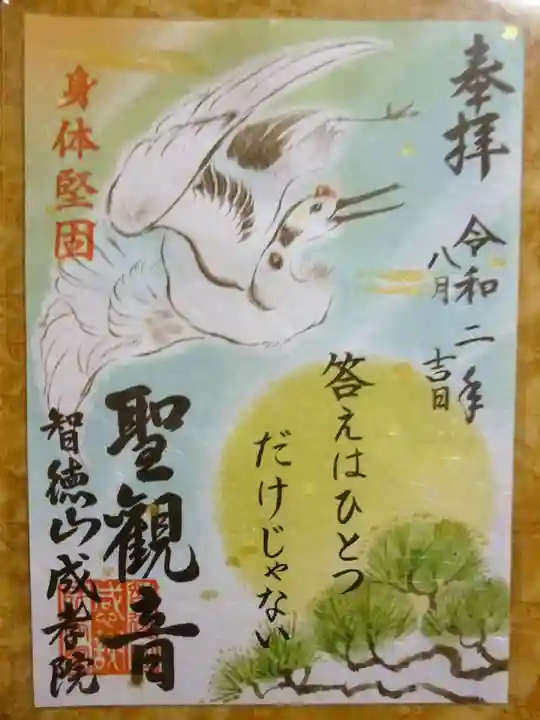 奉拝
令和二年
八月
吉日
答えはひとつ
だけじゃない
身体堅固
聖観音
智徳山成孝院